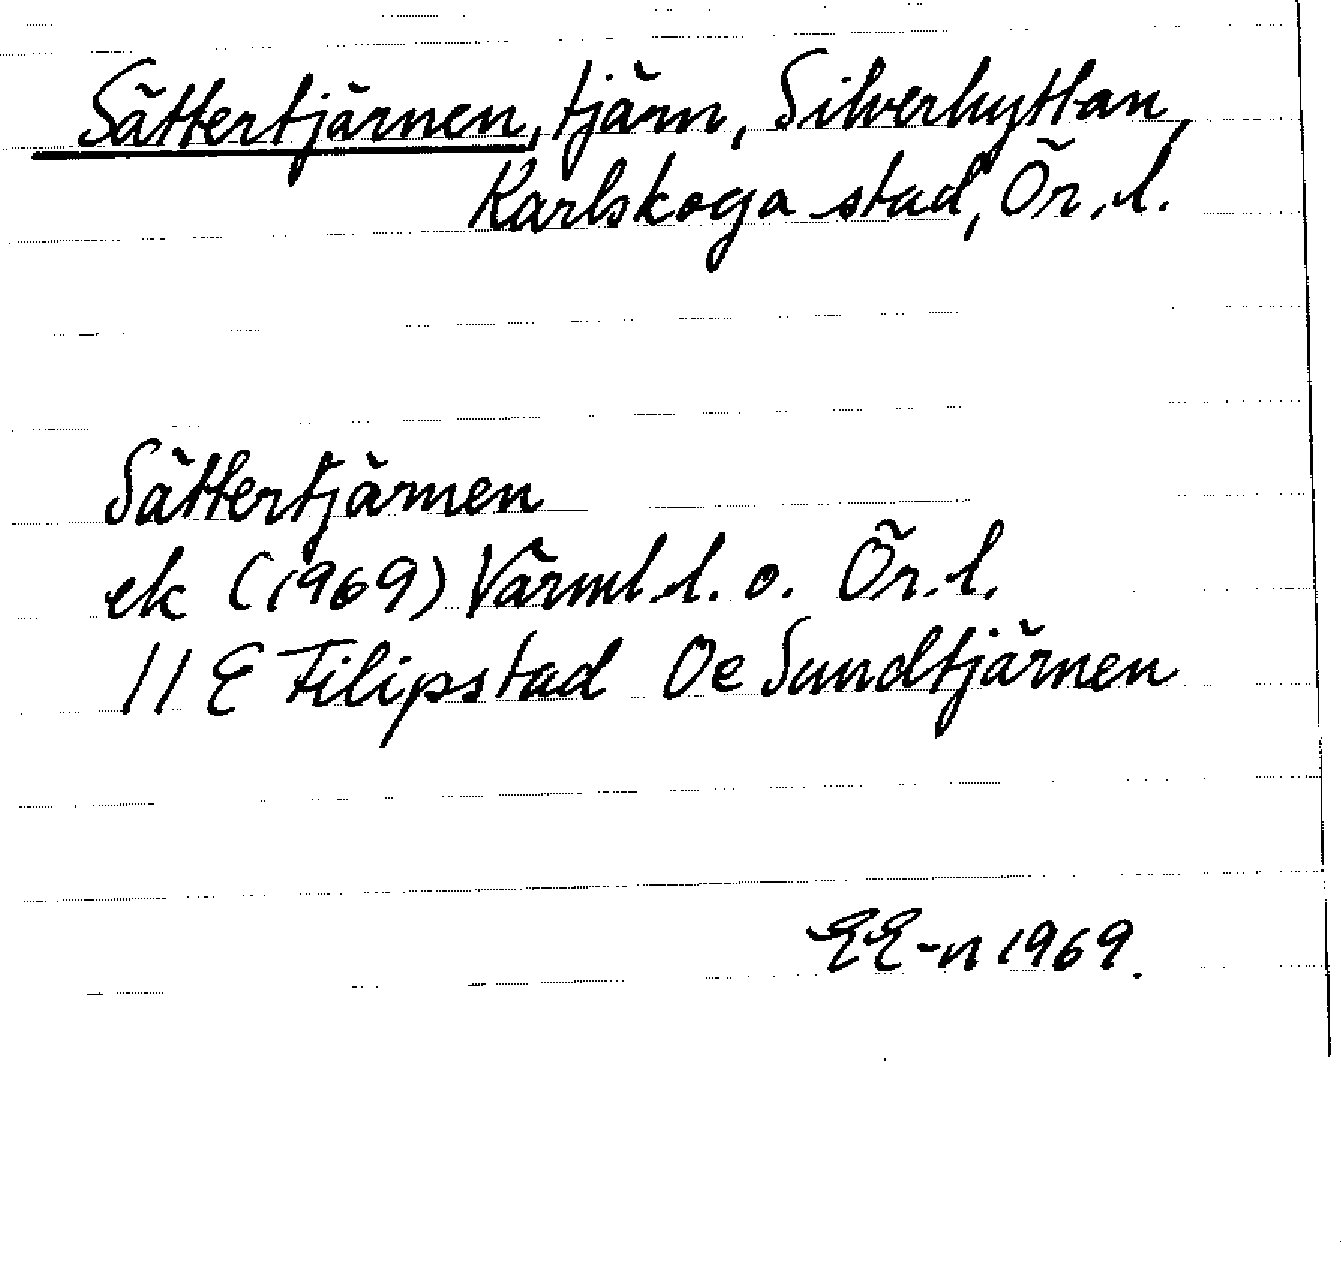 Sättertjärnen, tjärn, Silverhyttan,
Karlskoga stad, Ör. l.
Sättertjärnen
ek (1969) Värml. l. o. Ör. l.
11 E Filipstad Oe Sundtjärnen
EE-n 1969.